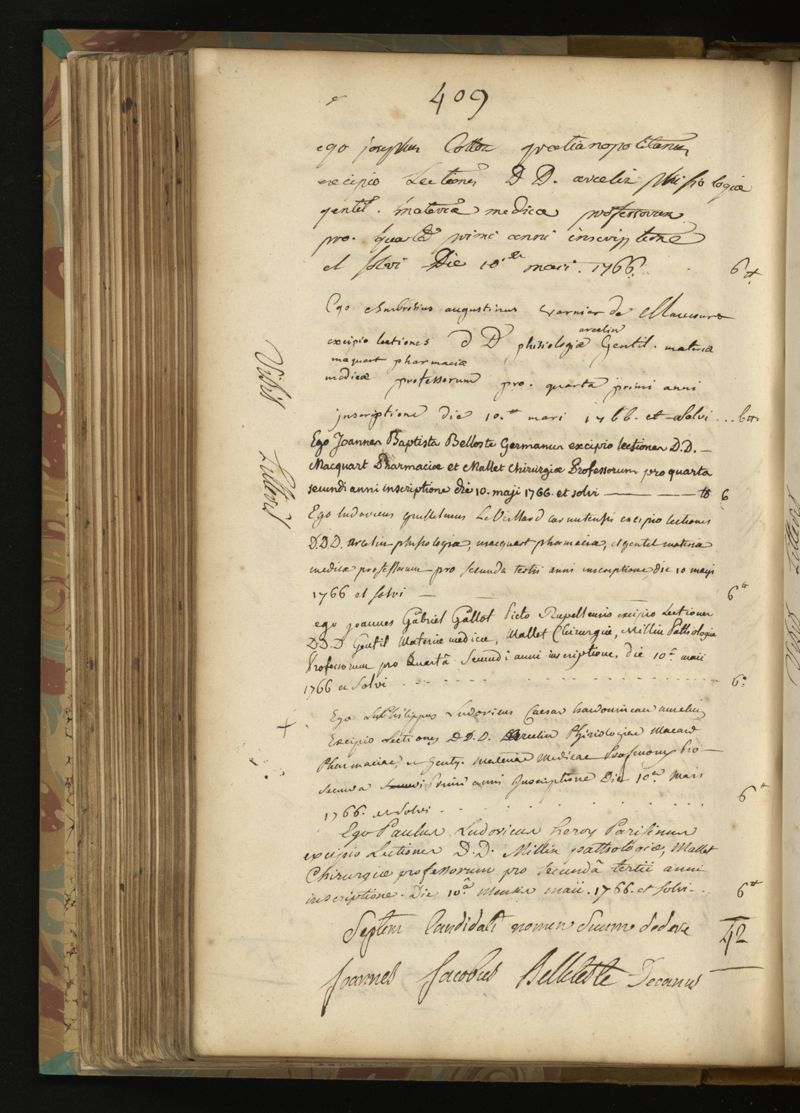 409
ego josephus Collot gratianopolitanus
excipio Lectiones D D. arcelin phisiologiæ
gentil. materiæ medicæ professorum
pro. quarta primi anni inscriptione
et solvi Die 10 maii. 1766. 6 tt
Ego Ambrosius augustinus varnier de
excipio lectiones D D phisiologiæ arcelin Gentil. materiæ
maquart pharmaciæ
medicæ professorum pro. quarta primi anni
inscriptione die 10. maii 1766. et solvi .. 6 tt
Ego Joannes Baptista Belloste Germanus excipio lectiones D.D. —
Macquart Pharmaciæ et Mallet Chirurgiæ Professorum pro quarta
secundi anni inscriptione die 10. maji 1766. et solvi — tt 6
Ego ludovicus guillelmus LeVeillard carnutensis excipio lectiones
D.D.D. arcelin phisiologiæ, macquart pharmaciæ, et gentil materiæ
medicæ professorum pro secunda tertii anni inscriptione die 10 maji
1766 et solvi — 6 tt
ego joannes Gabriel Gallot Picto Rupellensis excipio Lectiones
D.D.D Gentil Materiæ medicæ, Mallet Chirurgiæ, Millin Pathologiæ
Professorum pro Quartâ Secundi anni inscriptione. die 10a maii
1766 et Solvi . . . 6
Ego Philippus Ludovicus Caesar
Excipio Lectiones D.D.D. Arcelin Phisiologiae Macard
Pharmaciae et Genty. Materiae Medicae Professorum Pro
secunda Primi anni Inscriptione Die 10a Maii
1766. et Solvi . . . 6 tt
Ego Paulus Ludovicus Leroy Parisinus
excipio Lectiones D.D. Millin pathologiæ, Mallet
Chirurgiæ professorum pro secundâ tertii anni
inscriptione. Die 10â Mensis maii. 1766. et solvi.. 6 tt
Septem Candidati nomen Suum dedere 42
Joannes Jacobus Belleteste Decanus